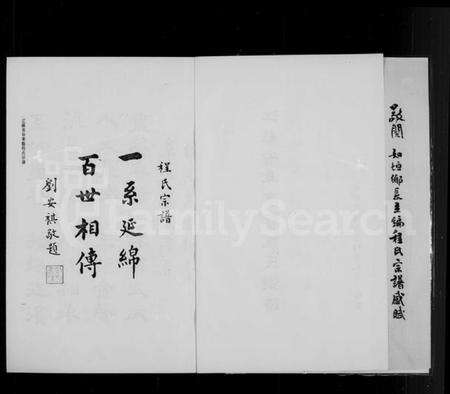 敬閱 如壇鄉長主編程氏宗譜感賦
程氏宗譜
一系延綿
百世相傳
劉安祺敬題
FamilySearch